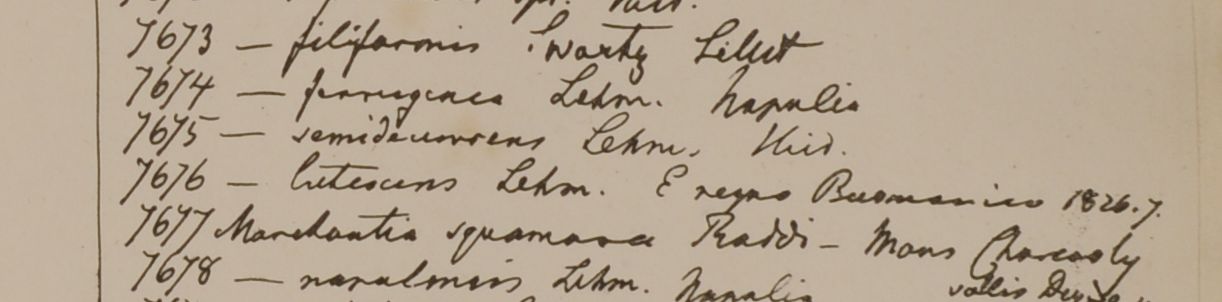 7673 — filiformis Swartz Sillet
7674 — ferruginea Lehm. Napalia
7675 — semidecurrens Lehm. Ibid.
7676 — lutescens Lehm. E regno Burmanico 1826.7.
7677 Marchantia squamosa Raddi — Mons
7678 — nepalensis Lehm. Napalia
vallis